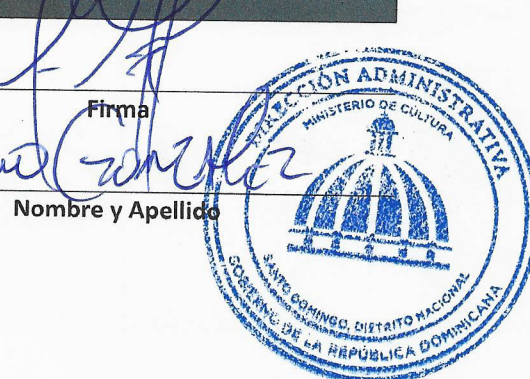 Firma
Gonzalez
Nombre y Apellido
DIRECCIÓN ADMINISTRATIVA
MINISTERIO DE CULTURA
SANTO DOMINGO, DISTRITO NACIONAL
GOBIERNO DE LA REPÚBLICA DOMINICANA